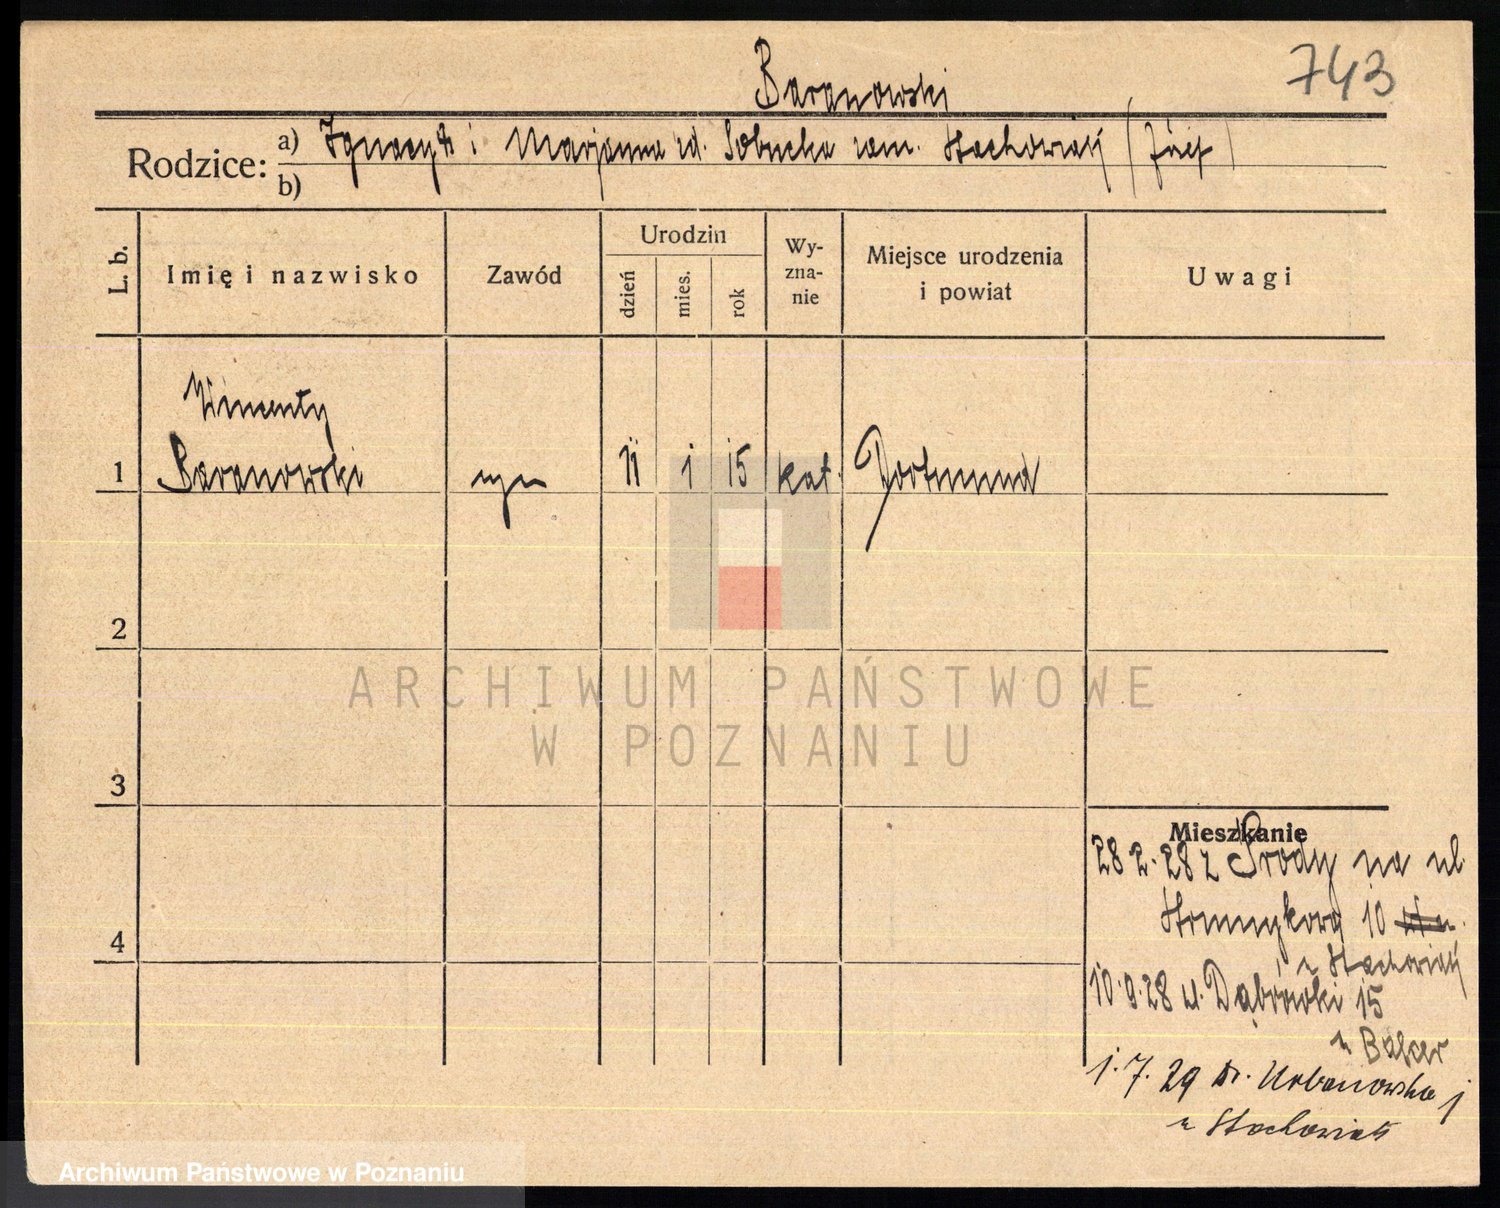 Baranowski
743
Rodzice: a) Ignacy i Marjanna zd. Sobucka zam. Stachowiak (Józef)
b)
L. b.
Imię i nazwisko
Zawód
Urodzin
dzień
mies.
rok
Wy-
zna-
nie
Miejsce urodzenia
i powiat
Uwagi
Wincenty
1 Baranowski syn 11 1 15 kat. Dortmund
2
3
4
Mieszkanie
28 2. 28 z Środy na ul.
10
u Stachowiak
10.9.28 ul. Dąbrówki 15
u
1. 7. 29 Urbanowska 1
u Stachowiak
ARCHIWUM PAŃSTWOWE
W POZNANIU
Archiwum Państwowe w Poznaniu